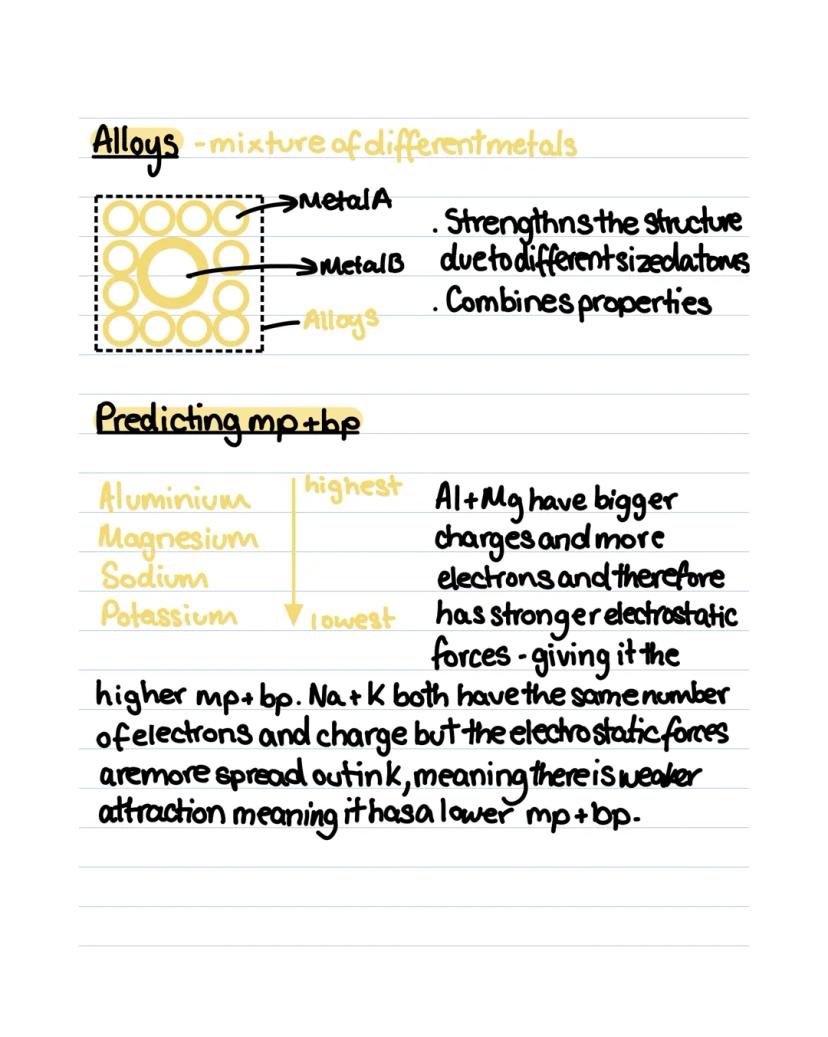 Alloys - mixture of different metals
Metal A
Metal B
Alloys
. Strengthns the structure
due to different sized atoms
. Combines properties
Predicting mp+bp
Aluminium
Magnesium
Sodium
Potassium
highest
lowest
Al+Mg have bigger
charges and more
electrons and therefore
has stronger electrostatic
forces - giving it the
higher mp+bp. Na+K both have the same number
of electrons and charge but the electrostatic forces
are more spread out in K, meaning there is weaker
attraction meaning it has a lower mp+bp.